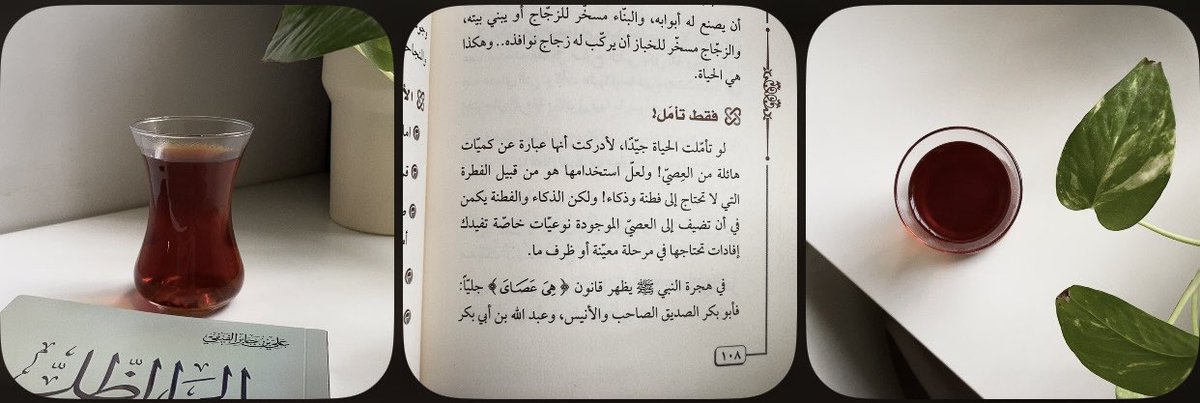 علي بن جابر الفيفي
إلى الظل
أن يصنع له أبوابه، والبنّاء مسخّر للزجّاج أو يبني بيته،
والزجّاج مسخّر للخباز أن يركّب له زجاج نوافذه.. وهكذا
هي الحياة.
فقط تأمّل!
لو تأمّلت الحياة جيّدًا، لأدركت أنها عبارة عن كميّات
هائلة من العِصيّ! ولعلّ استخدامها هو من قبيل الفطرة
التي لا تحتاج إلى فطنة وذكاء! ولكن الذكاء والفطنة يكمن
في أن تضيف إلى العصيّ الموجودة نوعيّات خاصّة تفيدك
إفادات تحتاجها في مرحلة معيّنة أو ظرف ما.
في هجرة النبي ﷺ يظهر قانون ﴿هِيَ عَصَايَ﴾ جليًّا:
فأبو بكر الصديق الصاحب والأنيس، وعبد الله بن أبي بكر
١٠٨